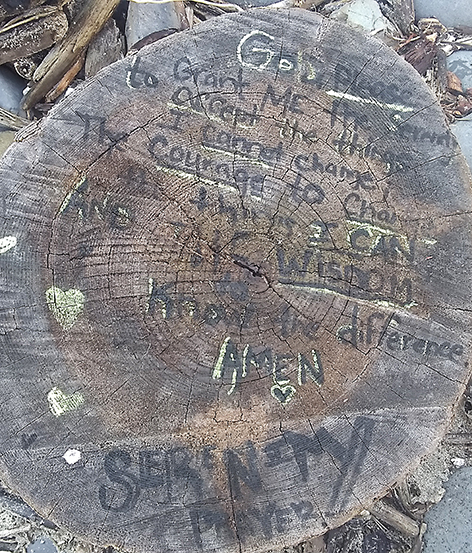 GOD, Please
to Grant ME the Serenity
Accept the things
I cannot change
The Courage to Change
things I CAN
AND the WISDOM
to
Know the difference
AMEN
SERENITY
PRAYER